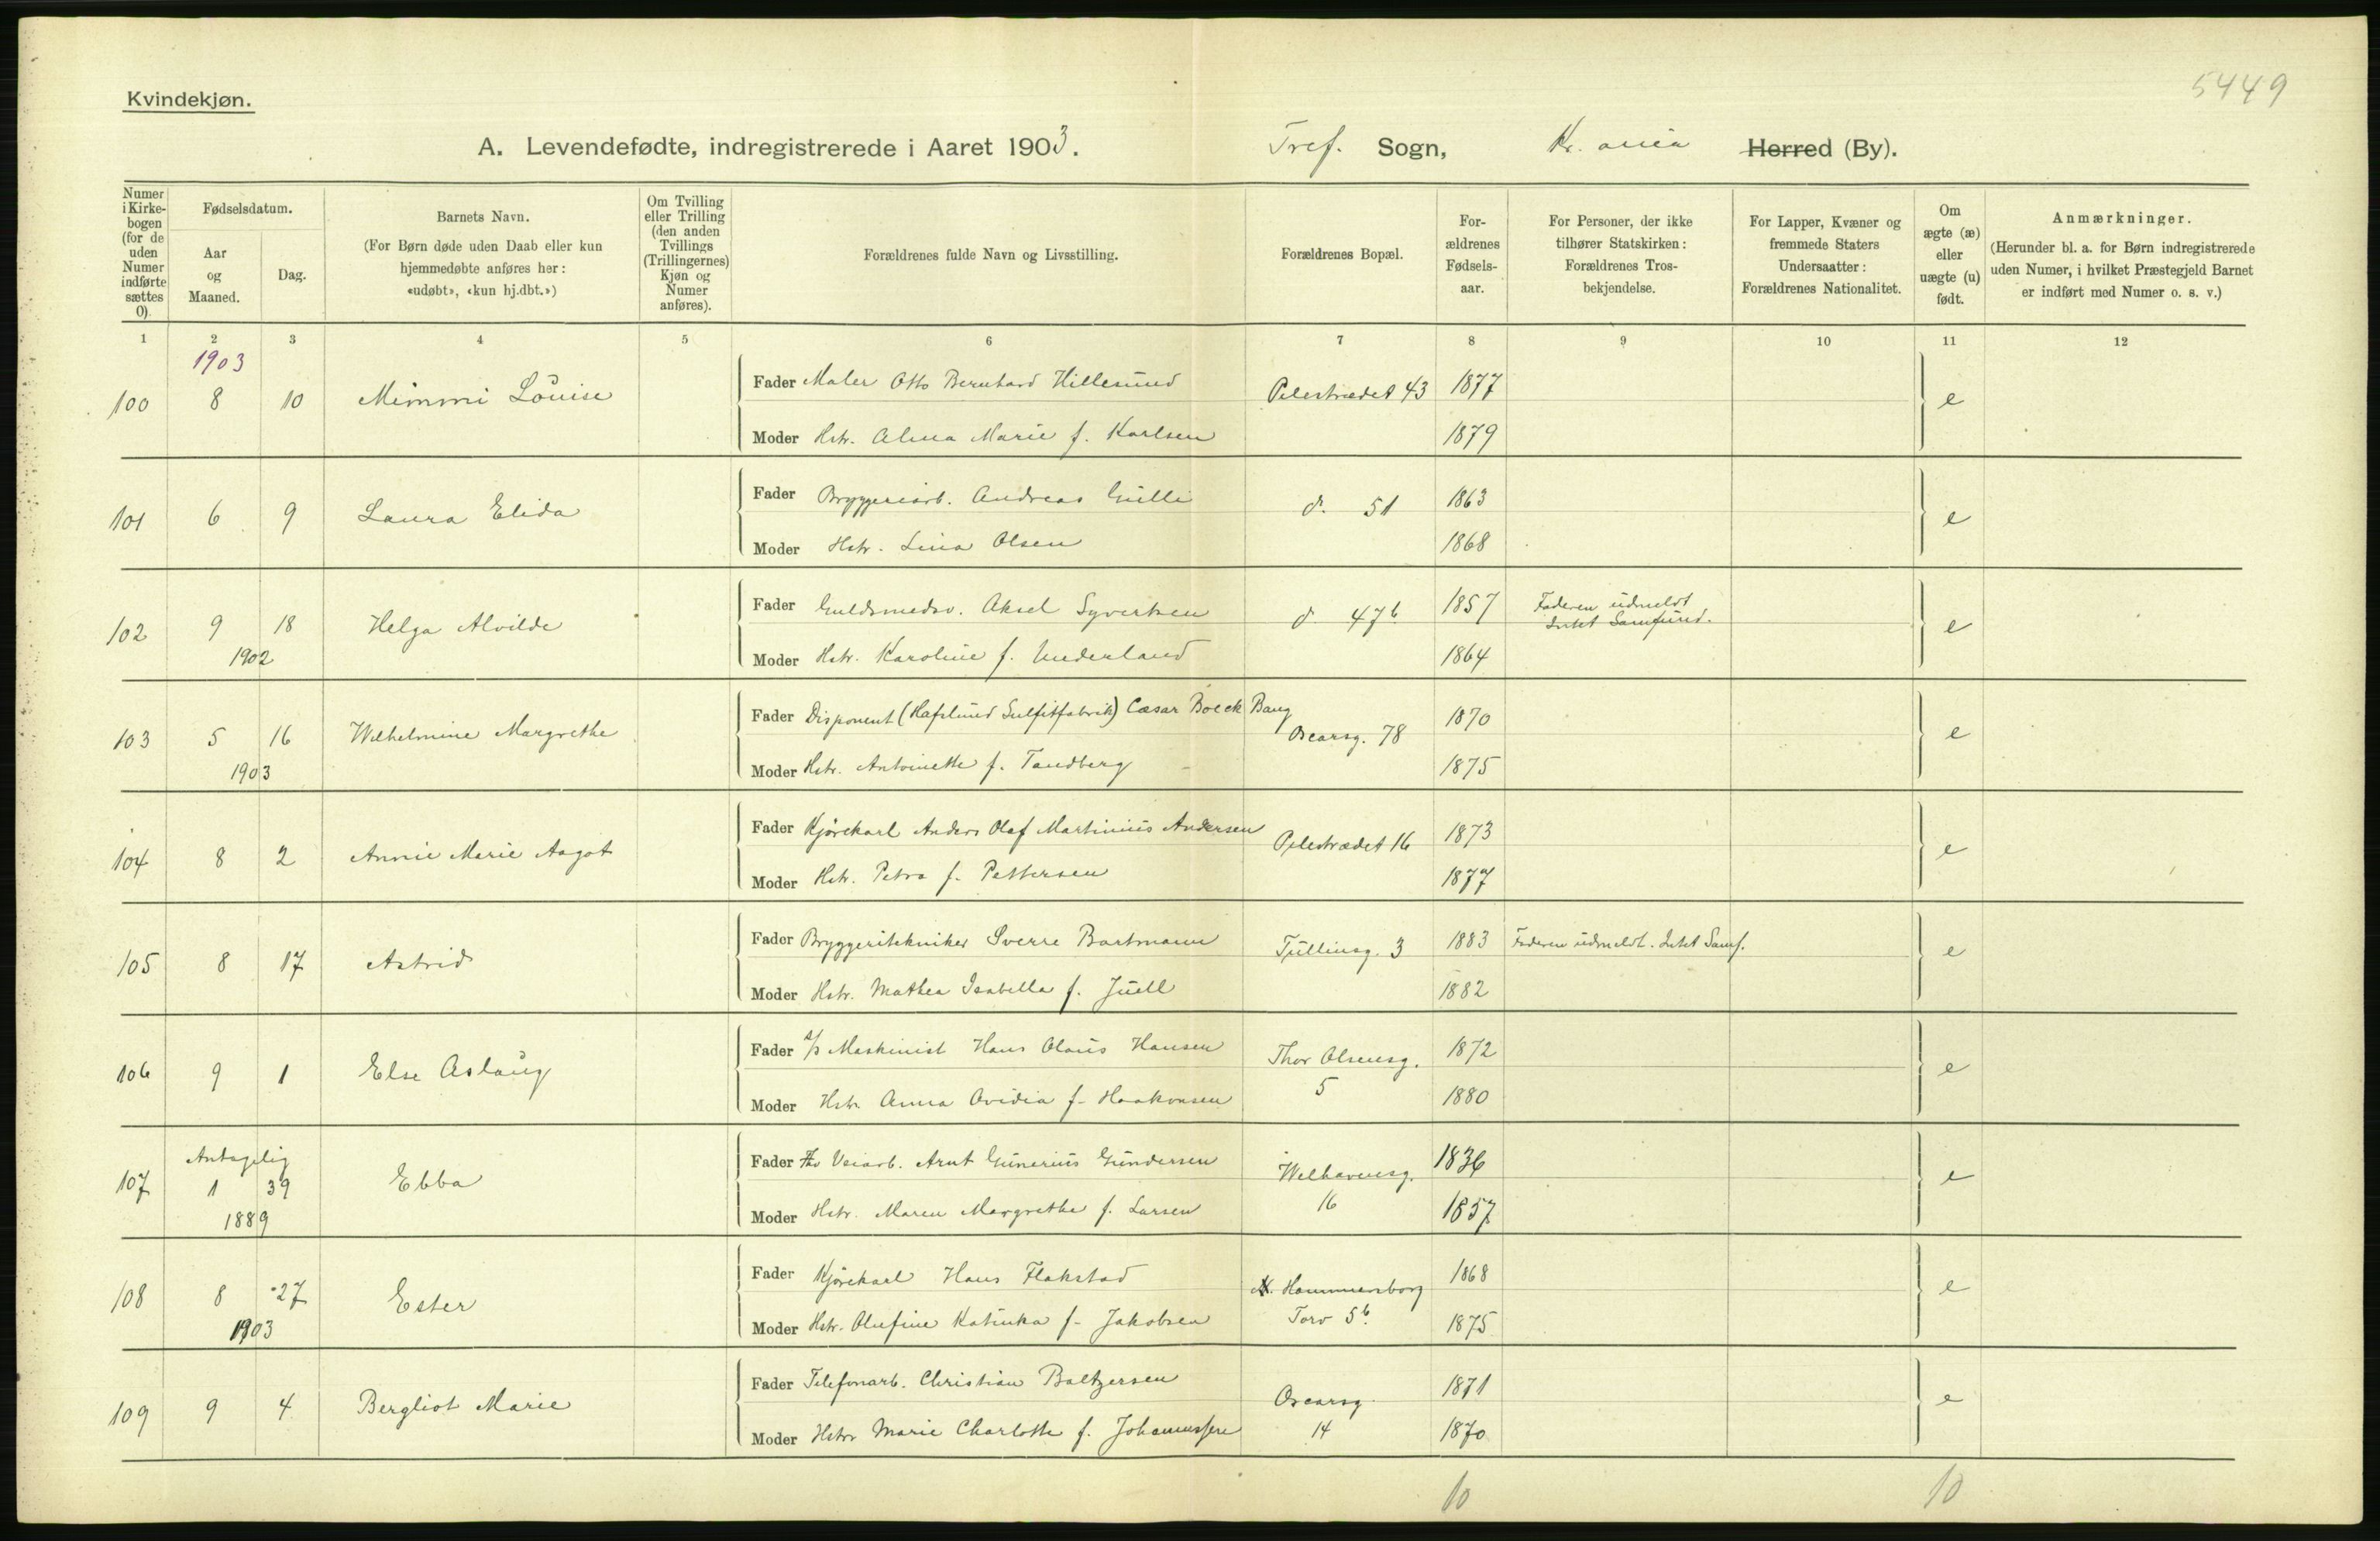 5449
Kvindekjøn.
A. Levendefødte, indregistrerede i Aaret 1903. Tref. Sogn, Kr. ania Herred (By).
Numer i Kirkebogen (for de uden Numer indførte sættes 0).
Fødselsdatum.
Aar og Maaned.
Dag.
Barnets Navn.
(For Børn døde uden Daab eller kun hjemmedøbte anføres her: «udøbt», «kun hj.dbt.»)
Om Tvilling eller Trilling (den anden Tvillings (Trillingernes) Kjøn og Numer anføres).
Forældrenes fulde Navn og Livsstilling.
Forældrenes Bopæl.
Forældrenes Fødselsaar.
For Personer, der ikke tilhører Statskirken: Forældrenes Trosbekjendelse.
For Lapper, Kvæner og fremmede Staters Undersaatter: Forældrenes Nationalitet.
Om ægte (æ) eller uægte (u) født.
Anmærkninger.
(Herunder bl. a. for Børn indregistrerede uden Numer, i hvilket Præstegjeld Barnet er indført med Numer o. s. v.)
1 2 3 4 5 6 7 8 9 10 11 12
1903
100 8 10 Mimmi Louise Fader Maler Otto Bernhard Hillesund Pilestrædet 43 1877 e
Moder Hstr. Alma Marie f. Karlsen 1879
101 6 9 Laura Elida Fader Bryggeriarb. Andreas Gulli d. 51 1863 e
Moder Hstr. Lina Olsen 1868
102 9 18 Helga Alvilde Fader Guldsmedsv. Aksel Syvertsen d. 47 b 1857 Faderen udmeldt Intet Samfund. e
1902
Moder Hstr. Karoline f. Underland 1864
103 5 16 Wilhelmine Margrethe Fader Disponent (Hafslund Sulfitfabrik) Cæsar Boeck Bang Oscarsg. 78 1870 e
1903
Moder Hstr. Antoinette f. Tandberg 1875
104 8 2 Annie Marie Aagot Fader Kjørekarl Anders Olaf Martinius Andersen Pilestrædet 16 1873 e
Moder Hstr. Petra f. Pettersen 1877
105 8 17 Astrid Fader Bryggeritekniker Sverre Bartmann Tullinsg. 3 1883 Faderen udmeldt. Intet Samf. e
Moder Hstr. Mathea Isabella f. Juell 1882
106 9 1 Else Aslaug Fader Maskinist Hans Olaus Hansen Thor Olsensg. 5 1872 e
Moder Hstr. Anna Ovidia f. Haakonsen 1880
107 Antagelig 1 39 Ebba Fader Veiarb. Arnt Gunerius Gundersen Welhavensg. 16 1836 e
1889
Moder Hstr. Maren Margrethe f. Larsen 1857
108 8 27 Ester Fader Kjørekarl Hans Flakstad Hammersborg Torv 5 b. 1868 e
1903
Moder Hstr. Olufine Katinka f. Jakobsen 1875
109 9 4 Bergliot Marie Fader Telefonarb. Christian Baltzersen Oscarsg. 14 1871 e
Moder Hstr Marie Charlotte f. Johannessen 1870
10 10